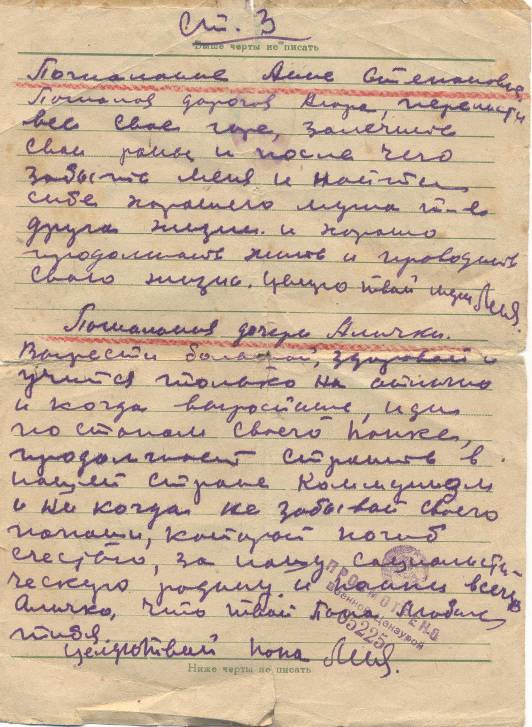 Ст. 3
Выше черты не писать
Пожелание Анне Степановне
дорогая Нюра, перенести
все свое горе, залечить
свои раны и после чего
забыть меня и найти
себе хорошего мужа т-е
друга жизни и хорошо
продолжать жить и проводить
свою жизнь. Целую твой муж Лёня.
Пожелания дочери Аличке.
Вырости большой, здоровой и
учится только на отлично
и когда выростишь, иди
по стопам своего папки,
продолжает строить в
нашей стране Коммунизм
и ни когда не забывай своего
папаши, который погиб
честно, за нашу социалисти-
ческую родину и помни всегда
Аличка, что твой папа любил
тебя.
Целую твой папа Лёня.
ПРОСМОТРЕНО
Военной Цензурой
05225
Ниже черты не писать